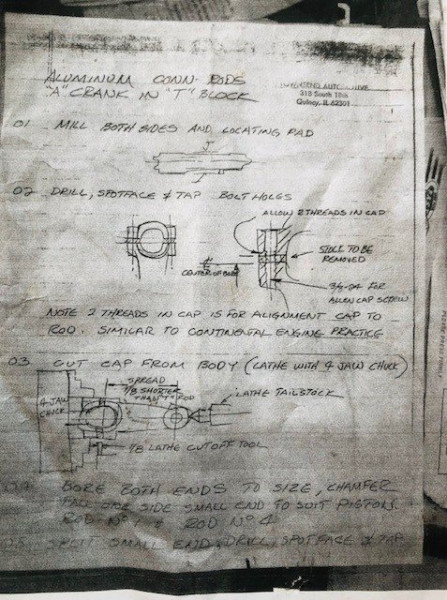 ALUMINUM CONN. RODS
"A" CRANK IN "T" BLOCK
318 South 10th
Quincy, IL 62301
01 MILL BOTH SIDES AND LOCATING PAD
02 DRILL, SPOTFACE & TAP BOLT HOLES
ALLOW 2 THREADS IN CAP
STOCK TO BE
REMOVED
CENTER OF BORE
3/8-24 FOR
ALLEN CAP SCREW
NOTE 2 THREADS IN CAP IS FOR ALIGNMENT CAP TO
ROD. SIMILAR TO CONTINENTAL ENGINE PRACTICE
03 CUT CAP FROM BODY (LATHE WITH 4 JAW CHUCK)
SPREAD
1/8 SHORTER
THAN "T" ROD
4 JAW
CHUCK
LATHE TAILSTOCK
1/8" LATHE CUTOFF TOOL
04 BORE BOTH ENDS TO SIZE, CHAMFER
ONE SIDE SMALL END TO SUIT PISTONS.
ROD Nº 1 & ROD Nº 4
05 SPLIT SMALL END, DRILL, SPOTFACE & TAP